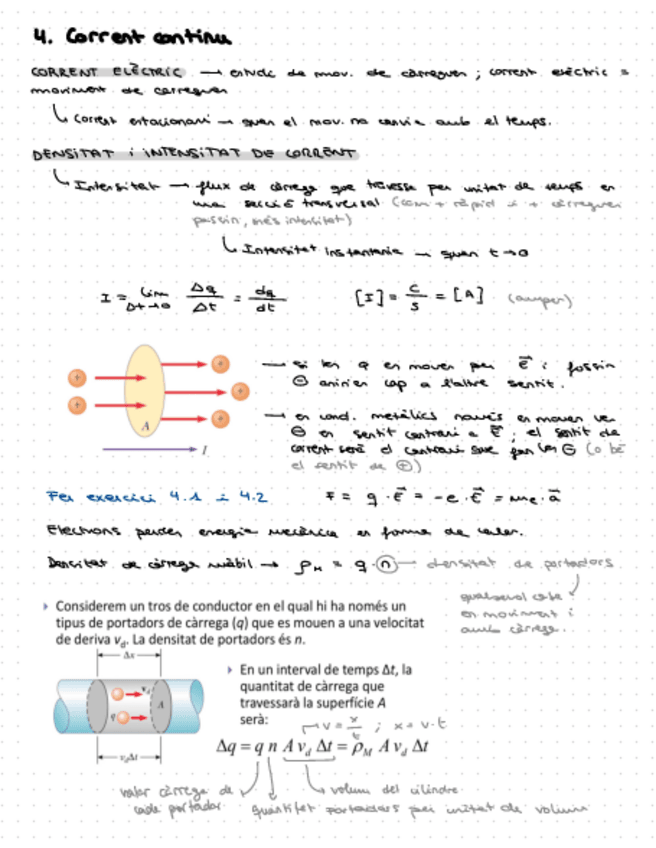 4. Corrent continu
CORRENT ELÈCTRIC → estudi de mov. de càrregues ; corrent elèctric =
moviment de carregues
↳ Corrent estacionari → quan el mov. no canvia amb el temps.
DENSITAT i INTENSITAT DE CORRENT
↳ Intensitat → flux de càrrega que travessa per unitat de temps en
una secció transversal (com + ràpid i + càrregues
passin, més intensitat)
↳ Intensitat instantània → quan t→0
I = lim Δt→0 Δq/Δt = dq/dt [I] = C/S = [A] (amper)
→ si les q en mouen per E⃗ i fossin
⊖ anirien cap a l'altre sentit.
A
I
→ en cond. metàl·lics només en mouen
⊖ en sentit contrari a E⃗ ; el sentit de
corrent serà el contrari que fan les ⊖ (o bé
el sentit de ⊕)
Fer exercici 4.1 i 4.2 F = q · E⃗ = -e · E⃗ = me · a⃗
Electrons perden energia mecànica en forma de calor.
Densitat de càrrega mòbil → ρM = q · n — densitat de portadors
qualsevol cosa
en moviment i
amb càrrega.
› Considerem un tros de conductor en el qual hi ha només un
tipus de portadors de càrrega (q) que es mouen a una velocitat
de deriva vd. La densitat de portadors és n.
Δx
› En un interval de temps Δt, la
quantitat de càrrega que
travessarà la superfície A
serà:
vd
q
A
vdΔt
v = x/t ; x = v·t
Δq = q n A vd Δt = ρM A vd Δt
valor càrrega de
cada portador
volum del cilindre
quantitat portadors per unitat de volum